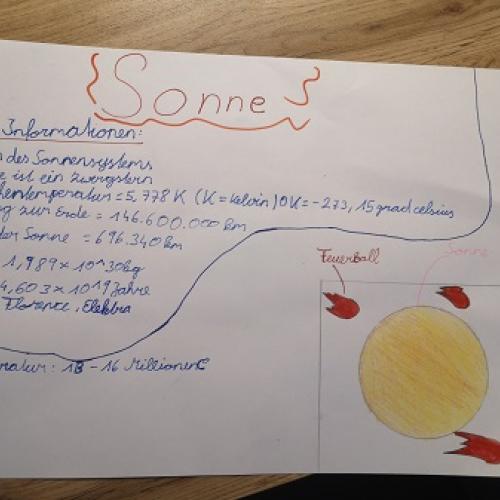 Sonne
Informationen:
des Sonnensystems
ist ein Zwergstern
hentemperatur = 5,778 K (K = Kelvin) 0K = -273,15 grad celsius
g zur Erde = 146.600.000 km
der Sonne = 696.340 km
1,989 x 10^30kg
4,603 x 10^9 Jahre
Florence, Elektra
ratur: 18 - 16 Millionen C
Feuerball
Sonne